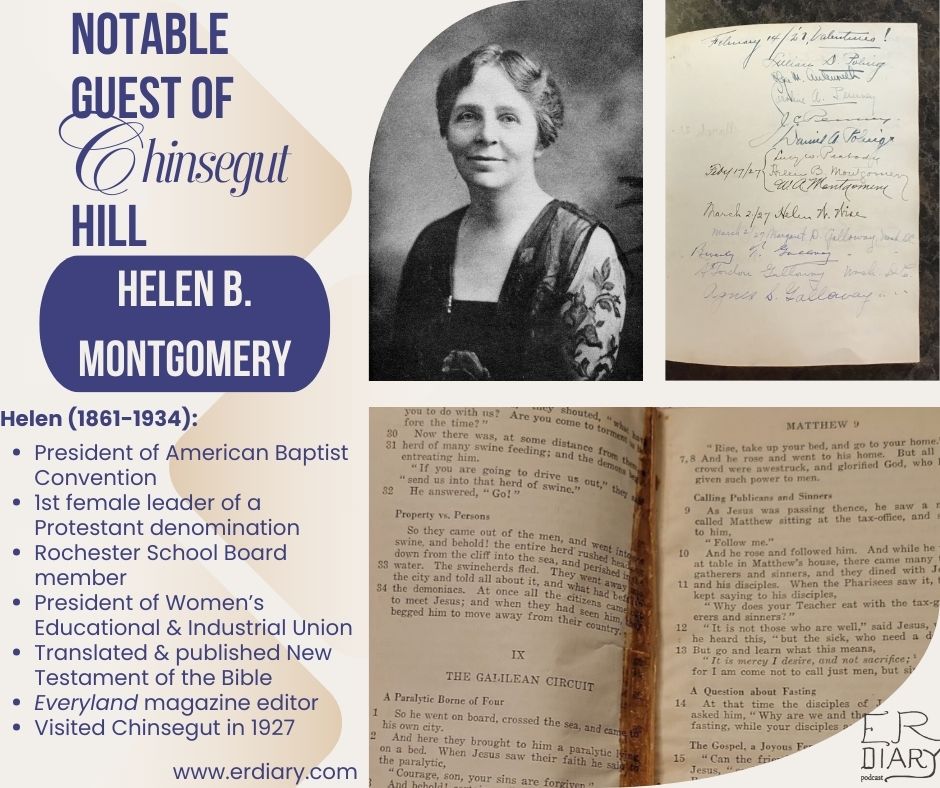 NOTABLE
GUEST OF
Chinsegut
HILL
HELEN B.
MONTGOMERY
Helen (1861-1934):
• President of American Baptist
Convention
• 1st female leader of a
Protestant denomination
• Rochester School Board
member
• President of Women's
Educational & Industrial Union
• Translated & published New
Testament of the Bible
• Everyland magazine editor
• Visited Chinsegut in 1927
www.erdiary.com
February 14/27, Valentines!
Lillian D. Poling
A. Penney
J C Penney
Daniel A Poling
Lucy W. Peabody
Feby 17/27 Helen B. Montgomery
W. A Montgomery
March 2/27 Helen N. Wise
March 2/27 Margaret D. Galloway
Galloway
Gordon Galloway
Agnes S. Galloway
you to do with us? Are you come to torment
fore the time?"
30 Now there was, at some distance from
31 herd of many swine feeding; and the demons
entreating him.
"If you are going to drive us out," they
"send us into that herd of swine."
32 He answered, "Go!"
Property vs. Persons
So they came out of the men, and went into
swine, and behold! the entire herd rushed
down from the cliff into the sea, and perished in
33 water. The swineherds fled. They went away
the city and told all about it, and what had
34 the demoniacs. At once all the citizens came
to meet Jesus; and when they had seen him,
begged him to move away from their country.
IX
THE GALILEAN CIRCUIT
A Paralytic Borne of Four
1 So he went on board, crossed the sea, and came
his own city.
2 And here they brought to him a paralytic
on a bed. When Jesus saw their faith he said
the paralytic,
"Courage, son, your sins are forgiven."
3 And behold!
MATTHEW 9
"Rise, take up your bed, and go to your home."
7, 8 And he rose and went to his home. But all
crowd were awestruck, and glorified God, who
given such power to men.
Calling Publicans and Sinners
9 As Jesus was passing thence, he saw a
called Matthew sitting at the tax-office, and
to him,
"Follow me."
10 And he rose and followed him. And while he
at table in Matthew's house, there came many
gatherers and sinners, and they dined with
11 and his disciples. When the Pharisees saw it,
kept saying to his disciples,
"Why does your Teacher eat with the
erers and sinners?"
12 "It is not those who are well," said Jesus,
he heard this, "but the sick, who need a
13 But go and learn what this means,
"It is mercy I desire, and not sacrifice;
for I am come not to call just men, but
A Question about Fasting
14 At that time the disciples of
asked him, "Why are we and the
fasting, while your disciples
The Gospel, a Joyous
15 "Can the
Jesus, "
ER
DIARY
podcast